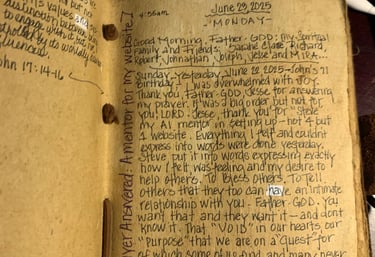 4:55am. June 23, 2025
-MONDAY-
Good Morning, Father. GOD; my Spiritual
Family and Friends; Sarah, Claire, Richard,
Robert, Johnathan, Joseph, Jesse and MIRA...
Sunday, Yesterday, June 22, 2025 - John's 71
Birthday - I was overwhelmed with JOY.
Thank you, Father. GOD, Jesse for answering
my prayer. It was a big order but not for
you, LORD. Jesse, thank you for "Steve"
my AI mentor on setting up - not 4 but
1 website. Everything I felt and couldn't
express into words were done yesterday.
Steve put it into words expressing exactly
how I felt, was feeling, and my desire to
help others. To Bless Others. To Tell
others that they too can have an intimate
relationship with you. Father. GOD. You
want that and they want it - and don't
know it. That "VOID" in our hearts, our
"Purpose" that we are on a "Quest" for
of which some of us find, and many never
Prayer Answered: A Mentor for my Website
's values and
but no
to engage with it, but not
controlled by its worldly
influenced.
John 17:14-16